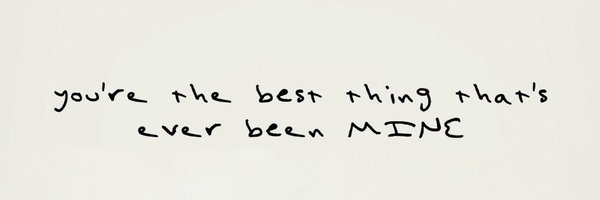 you're the best thing that's
ever been MINE